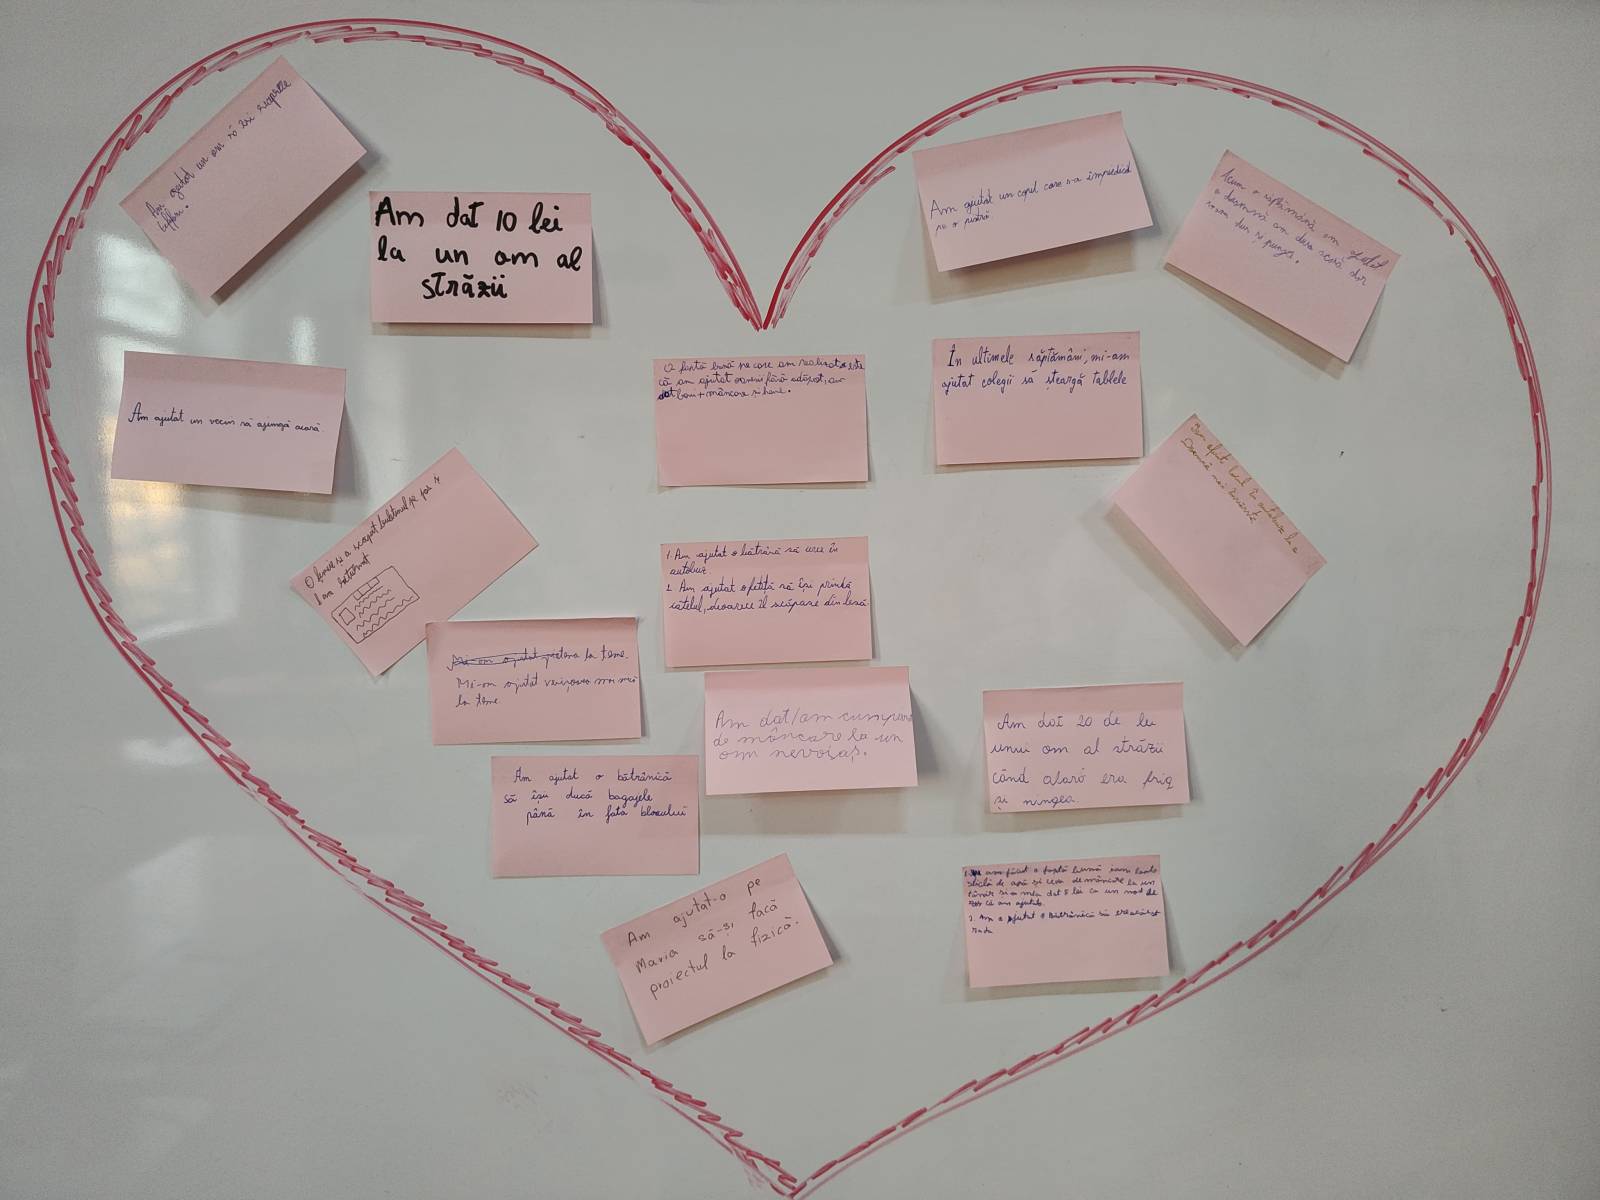 Am ajutat un om să își repare
Am dat 10 lei
la un om al
străzii
Am ajutat un copil care s-a împiedicat
pe o piatră.
Acum o săptămână am ajutat
o doamnă
și punga.
Am ajutat un vecin să ajungă acasă.
O faptă bună pe care am realizat este
că am ajutat oameni fără adăpost, am
dat bani + mâncare și haine.
În ultimele săptămâni, mi-am
ajutat colegii să șteargă tablele
locul în autobuz la o
Doamnă mai
O femeie și-a scăpat buletinul pe jos și
l-am returnat
1. Am ajutat o bătrână să urce în
autobuz.
2. Am ajutat o fetiță să își prindă
cățelul, deoarece îl scăpase din lesă.
Mi-am ajutat la teme.
Mi-am ajutat verișoara mai mică
la teme.
Am dat/am cumpărat
de mâncare la un
om nevoiaș.
Am dat 20 de lei
unui om al străzii
când afară era frig
și ningea.
Am ajutat o bătrânică
să își ducă bagajele
până în fața blocului
Am ajutat-o pe
Maria să-și facă
proiectul la fizică.
am făcut o faptă bună
sticlă de apă și ceva de mâncare la un
tânăr și a mea dat 5 lei ca un mod de
că am ajutat.
2. Am ajutat o bătrânică să